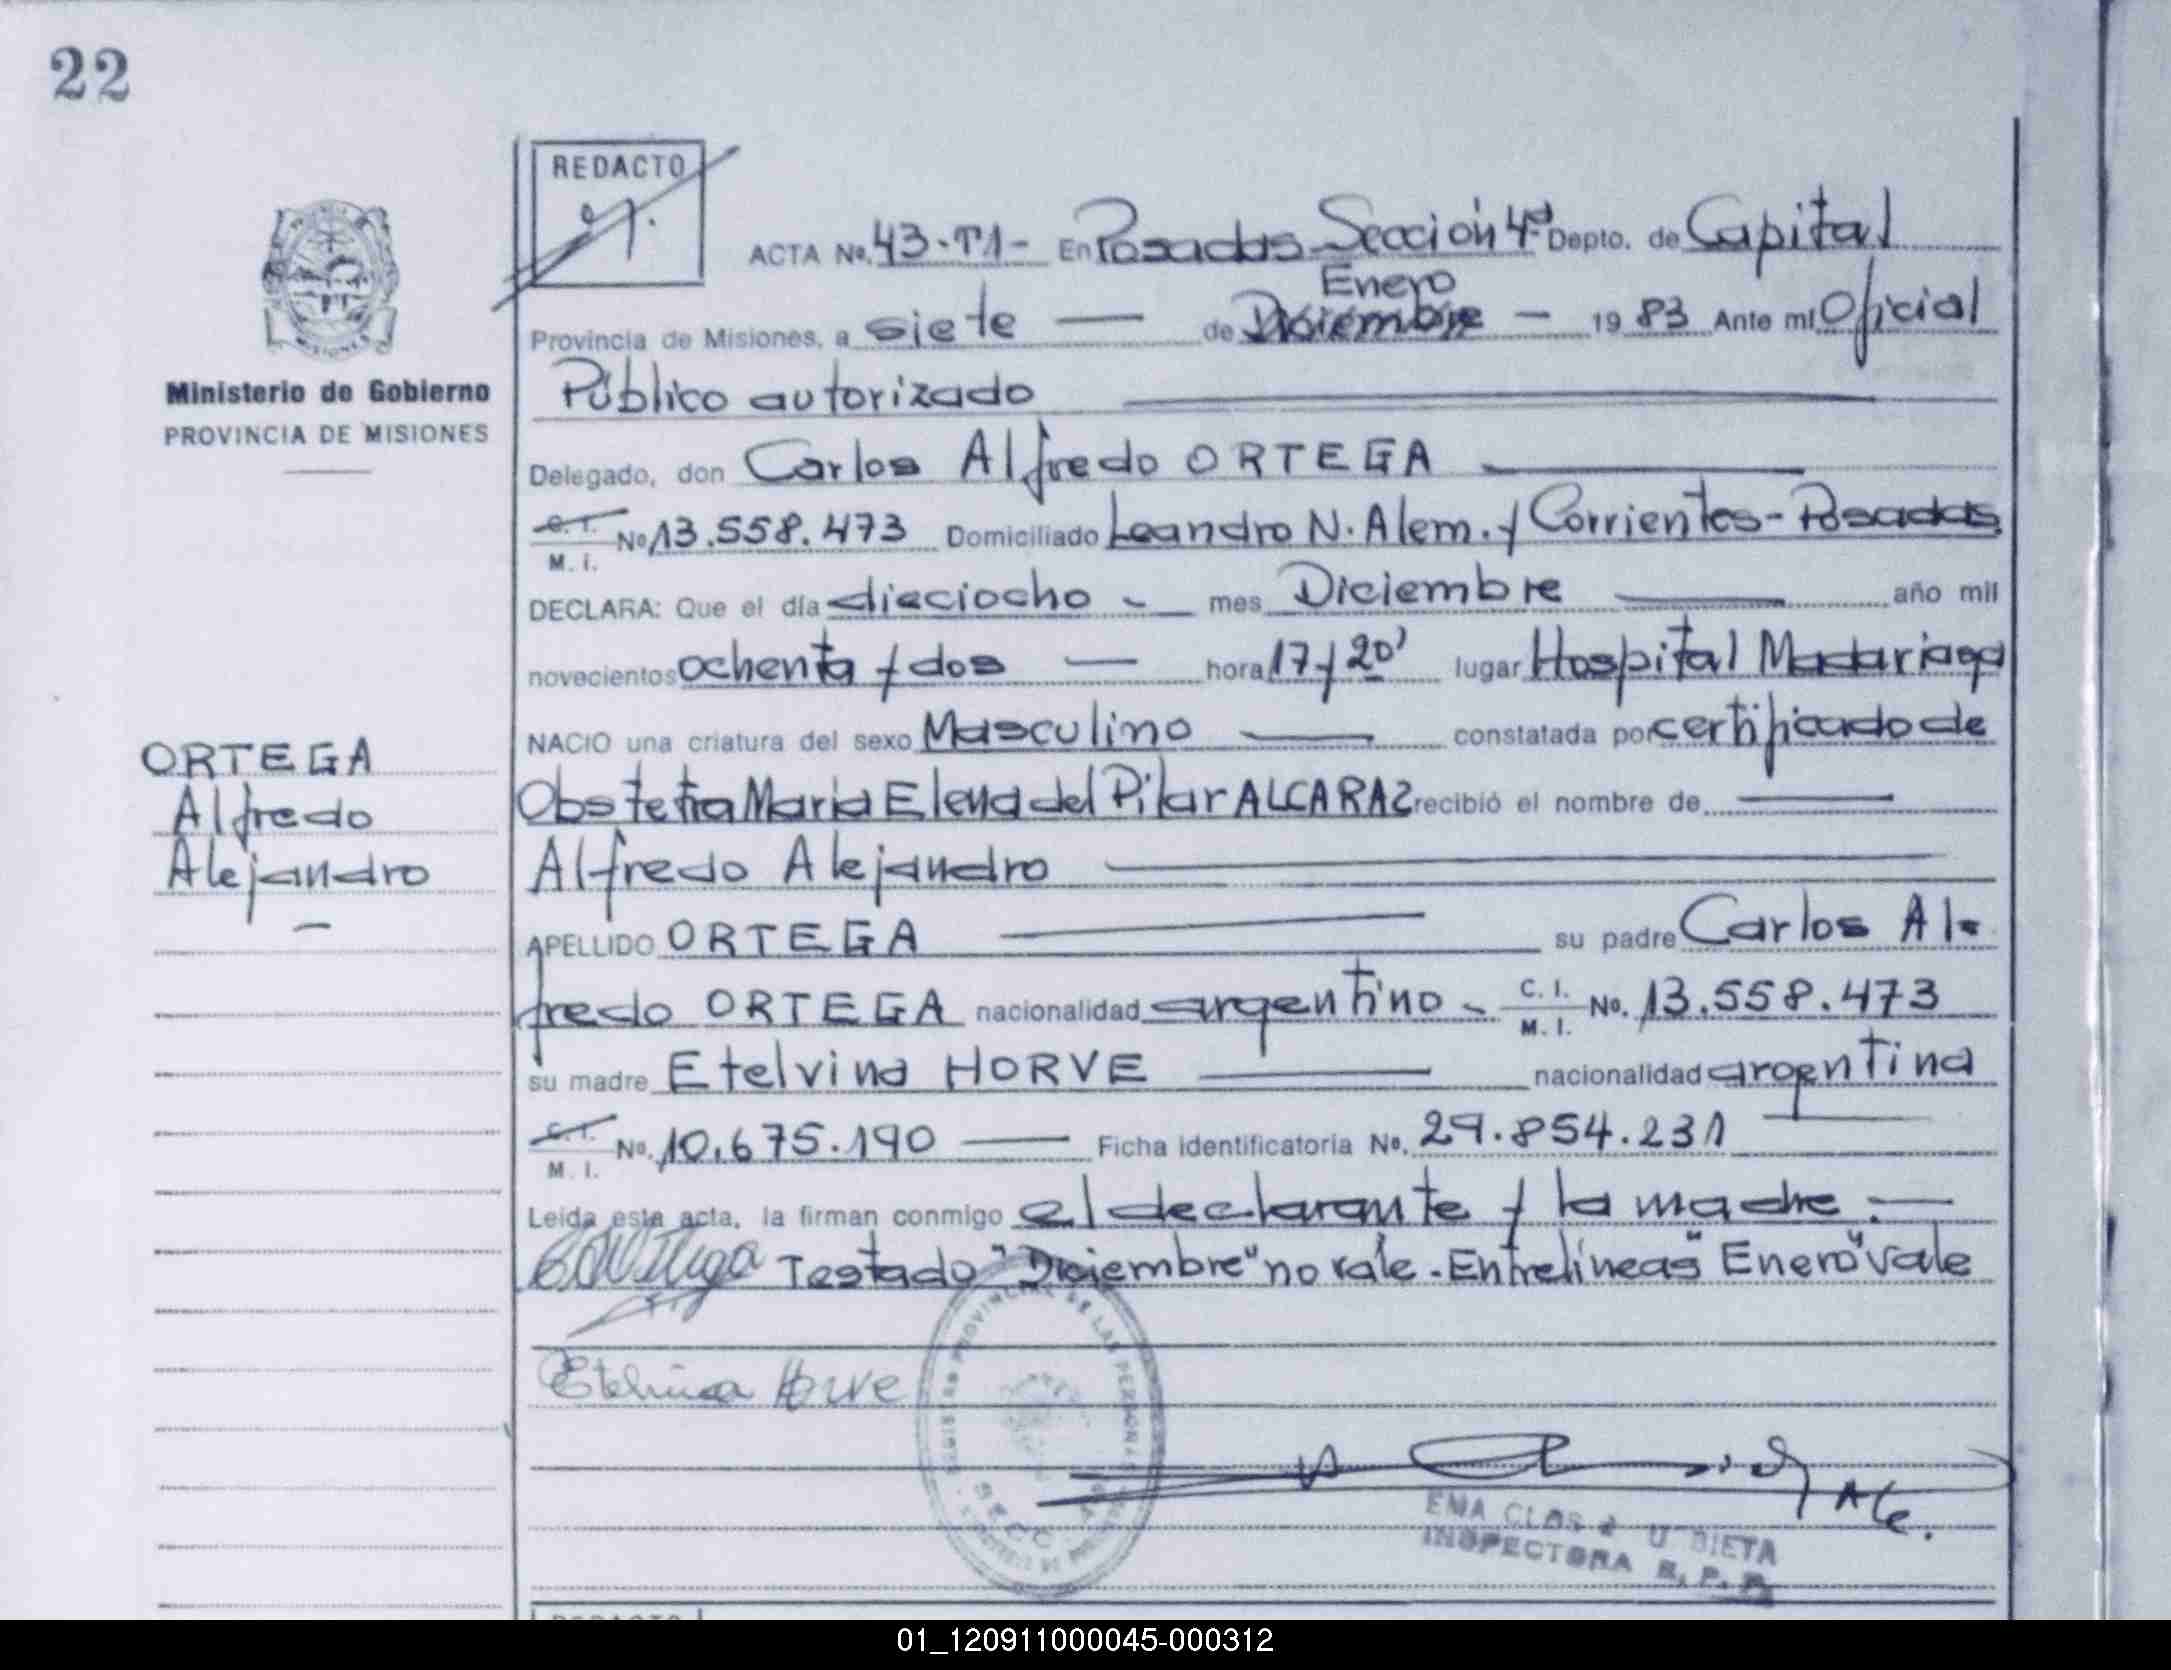 22
REDACTO
ACTA No. 43-T1- En Posadas Sección 4ª Depto. de Capital
Enero
Provincia de Misiones, a siete — de Diciembre — 19 83 Ante mí Oficial
Público autorizado
Ministerio de Gobierno
PROVINCIA DE MISIONES
Delegado, don Carlos Alfredo ORTEGA
C. I.
M. I. No 13.558.473 Domiciliado Leandro N. Alem. y Corrientes - Posadas
DECLARA: Que el día dieciocho - mes Diciembre año mil
novecientos ochenta y dos — hora 17 y 20' lugar Hospital Madariaga
NACIO una criatura del sexo Masculino — constatada por certificado de
Obstetra Maria Elena del Pilar ALCARAZ recibió el nombre de
Alfredo Alejandro
ORTEGA
Alfredo
Alejandro
APELLIDO ORTEGA su padre Carlos Al-
fredo ORTEGA nacionalidad argentino - C. I.
M. I. No. 13.558.473
su madre Etelvina HORVE nacionalidad argentina
C. I.
M. I. No. 10.675.190 — Ficha identificatoria No. 29.854.231
Leída esta acta, la firman conmigo el declarante y la madre.-
Testado "Diciembre" no vale - Entrelíneas "Enero" vale
Etelvina Horve
INSPECTORA R. P. P.
REDACTO
01_120911000045-000312